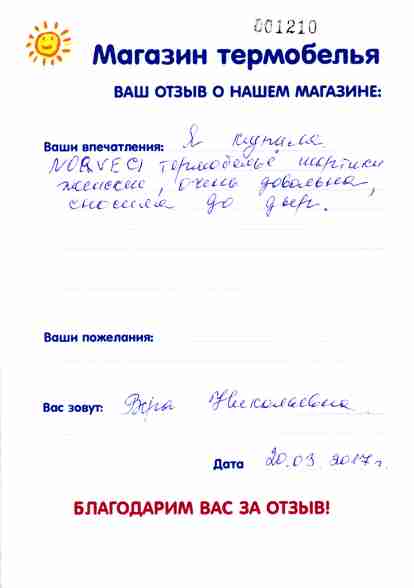 001210
Магазин термобелья
ВАШ ОТЗЫВ О НАШЕМ МАГАЗИНЕ:
Ваши впечатления: Я купила
NORVEG термобелье шортики
женские, очень довольна,
сносила до дыр.
Ваши пожелания:
Вас зовут: Вера Николаевна
Дата 20.03.2017г.
БЛАГОДАРИМ ВАС ЗА ОТЗЫВ!